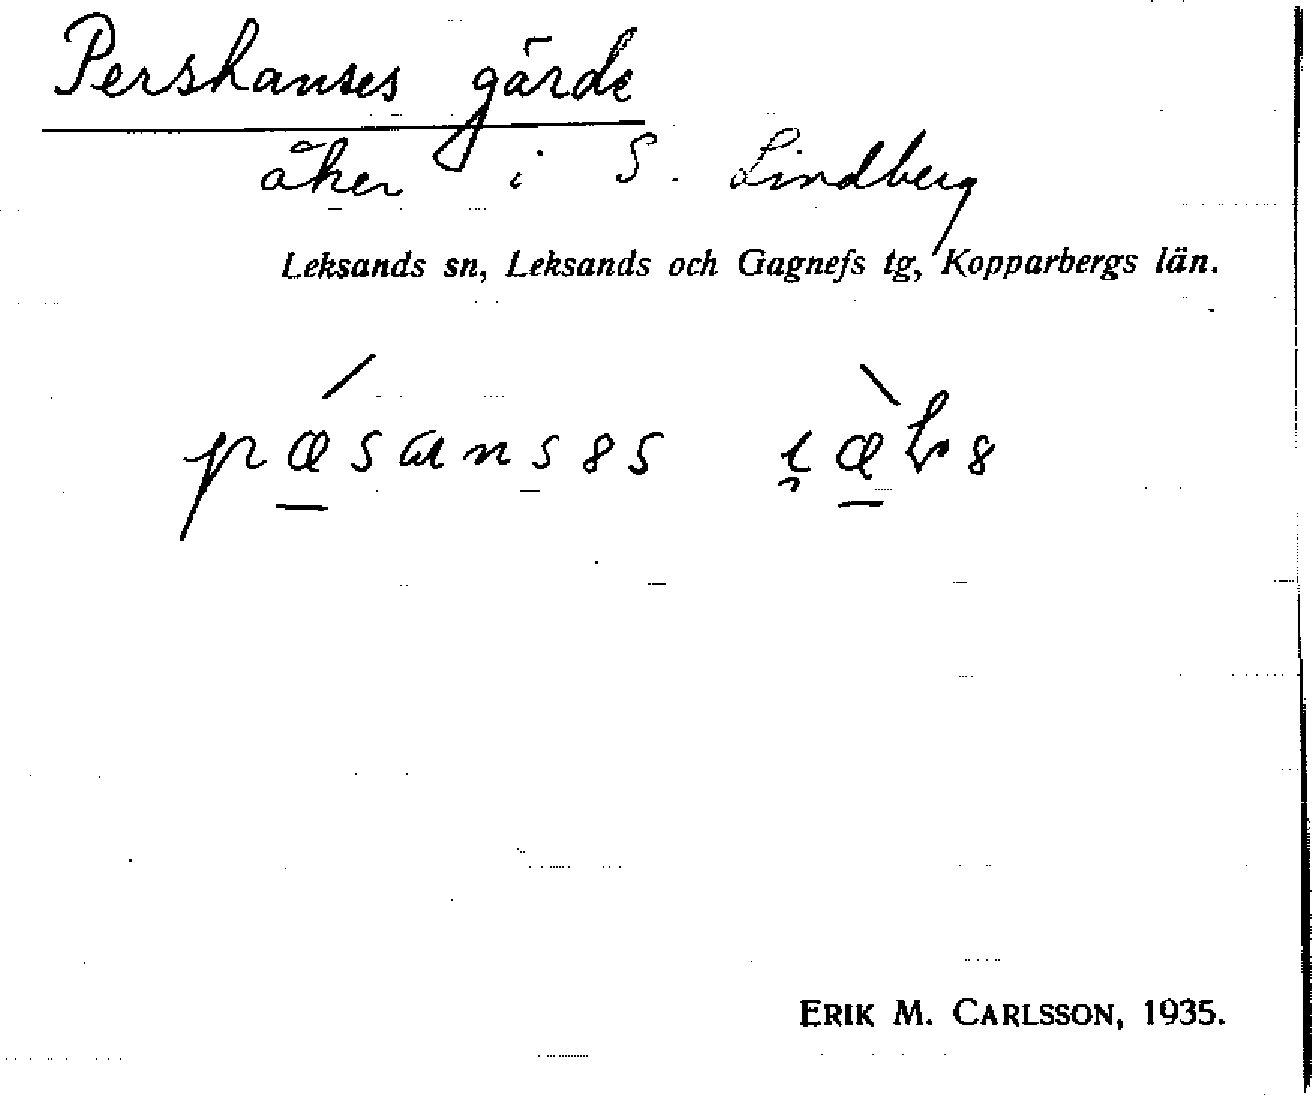 Pershanses gärde
åker i S. Lindberg
Leksands sn, Leksands och Gagnefs tg, Kopparbergs län.
ERIK M. CARLSSON, 1935.